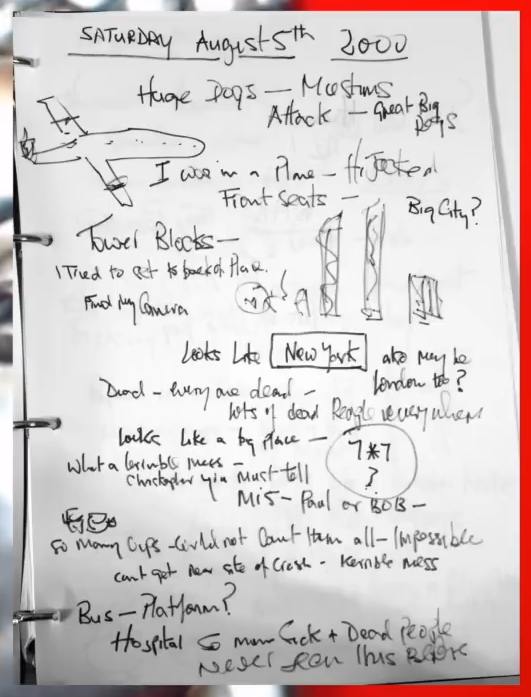 SATURDAY August 5th 2000
Huge Dogs —
Attack — Great Big Dogs
I was in a Plane — Hijacked
Front Seats —
Big City?
Tower Blocks —
I Tried to get to back of Plane.
Find My Camera
Looks Like New York also may be
London too?
Dead — everyone dead —
lots of dead People everywhere
Looks Like a big place —
7*7
?
What a terrible mess —
Christopher you Must tell
Mi5 — Paul or BOB —
So Many Cups — Could not Count them all — Impossible
cant get near site of Crash - terrible mess
Bus — Platform?
Hospital So many Sick + Dead People
Never seen this Before